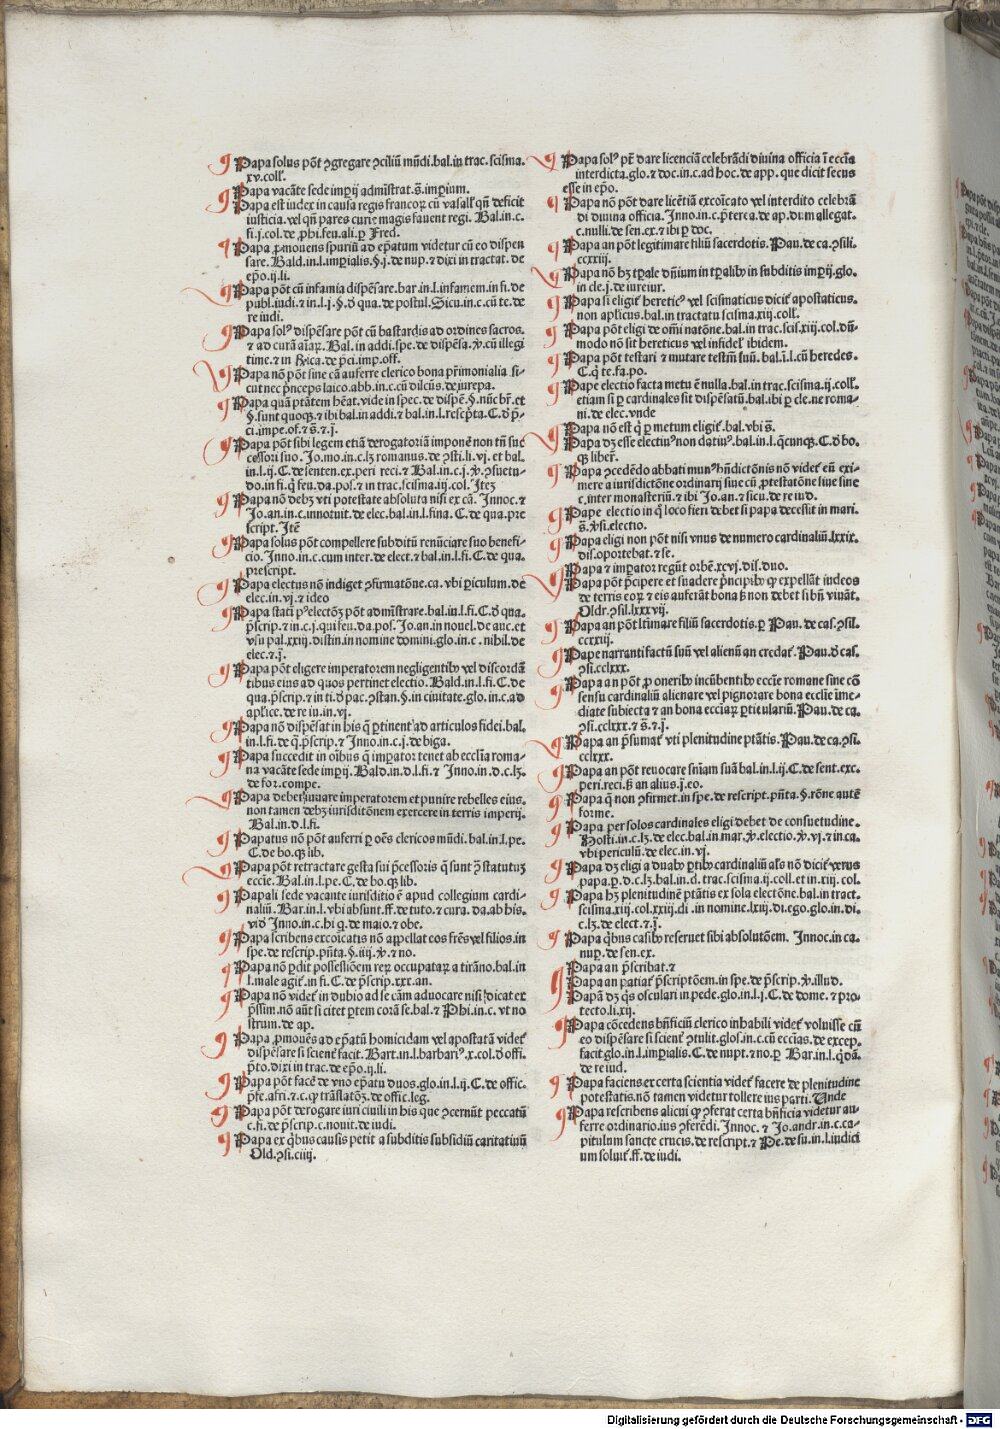 Papa solus põt ꝯgregare ꝯciliũ mũdi.bal.in trac.scisma.
xv.coll'.
Papa vacãte sede imꝑij admĩstrat.s̃.imꝑium.
Papa est iudex in causa regis francoꝝ cũ vasall' qñ deficit
iusticia.vel qñ pares curie magis fauent regi. Bal.in.c.
fi.j.col.de ꝓhi.feu.ali.ꝑ Fred.
Papa ꝓmouens spuriũ ad ep̃atum videtur cũ eo dispen
sare. Bald.in.l.imꝑialis.§.j.de nup.⁊ dixi in tractat. de
ep̃o.ij.li.
Papa põt cũ infamia dispẽsare.bar.in.l.infamem.in fi.de
publ.iudi.⁊ in.l.j.§.ð qua.de postul. Sicu.in.c.cũ te.de
re iudi.
Papa solꝰ dispẽsare põt cũ bastardis ad ordines sacros.
⁊ ad curã aĩaꝝ. Bal.in addi.spe.de dispẽsa.ꝟ.cũ illegi
time.⁊ in
Papa nõ põt sine cã auferre clerico bona pr̃imonialia si-
cut nec pͥnceps laico.abb.in.c.cũ dilcũs.de iurepa.
Papa quã ptãtem hẽat.vide in spec.de dispẽ.§.nũc br̃.et
§.sunt quoqꝫ.⁊ ibi bal.in addi.⁊ bal.in.l.rescp̃ta.C.ð p̃-
ci.impe.of.⁊ s̃.⁊.j̃.
Papa põt sibi legem etiã derogatoriã imponẽ non tñ suc
cessori suo. Jo.mo.in.c.lꝫ romanus.de ꝯsti.li.vj.et bal.
in.l.ij.C.de senten.ex.peri reci.⁊ Bal.in.c.j.ꝟ.ꝯsuetu-
do.in fi.q̃ feu.da.pos.⁊ in trac.scisma.iij.col. Itez
Papa nõ debꝫ vti potestate absoluta nisi ex cã. Innoc.⁊
Jo.an.in.c.innotuit.de elec.bal.in.l.fina. C.de qua.pre
script. Itẽ
Papa solus põt compellere subditũ renũciare suo benefi-
cio. Inno.in.c.cum inter.de elect.⁊ bal.in.l.fi.C.de qua.
prescript.
Papa electus nõ indiget ꝯfirmatõne.ca.vbi ꝑiculum.de
elec.in.vj.⁊ ideo
Papa stati pꝰ electõꝫ põt admĩstrare.bal.in.l.fi.C.ð qua.
p̃scrip.⁊ in.c.j.qui feu.da.pos. Jo.an.in nouel.de auc.et
vsu pal.xxiij.distin.in nomine domini.glo.in.c.nihil.de
elec.⁊.j̃.
Papa põt eligere imperatorem negligentibꝰ vel discordã
tibus eius ad quos pertinet electio. Bald.in.l.fi.C.de
qua.p̃scrip.⁊ in ti.ð pac.ꝯstan.§.in ciuitate.glo.in.c.ad
apl'ice.de re iu.in.vj.
Papa nõ dispẽsat in his q̃ ꝑtinent ad articulos fidei.bal.
in.l.fi.de q̃.p̃scrip.⁊ Inno.in.c.j.de biga.
Papa succedit in oĩbus q̃ imꝑator tenet ab eccl'ia roma-
na vacãte sede imꝑij. Bald.in.d.l.fi.⁊ Inno.in.d.c.lꝫ.
de for.compe.
Papa debet iuuare imperatorem et punire rebelles eius.
non tamen debꝫ iurisditõnem exercere in terris imperij.
Bal.in.d.l.fi.
Papatus nõ põt auferri ꝑ oẽs clericos mũdi.bal.in.l.pe.
C.de bo.qͥ lib.
Papa põt retractare gesta sui p̃cessoris q̃ sunt ꝯ̃ statutuꝫ
eccl'ie. Bal.in.l.pe.C.de bo.qͥ lib.
Papali sede vacante iurisditio ẽ apud collegium cardi-
naliũ. Bar.in.l.vbi absunt.ff.de tuto.⁊ cura.da.ab his.
vid' Inno.in.c.hi q̃.de maio.⁊ obe.
Papa scribens excoĩcatis nõ appellat eos fr̃es vel filios.in
spe.de rescrip.pñta.§.iiij.ꝟ.⁊ no.
Papa nõ ꝑdit possessiõem reꝝ occupataꝝ a tirãno.bal.in
.l.male agit'.in fi.C.de p̃scrip.xxx.an.
Papa nõ videt' in dubio ad se cãm aduocare nisi ẜ dicat ex
p̃ssim.nõ aũt si citet ꝑtem corã se.bal.⁊ Phi.in.c.vt no
strum.de ap.
Papa ꝓmouẽs ad ep̃atũ homicidam vel apostatã videt'
dispẽsare si scient' facit. Bart.in.l.barbariꝰ.x.col.ð offi.
p̃to.dixi in trac.de ep̃o.ij.li.
Papa põt facẽ de vno ep̃atu duos.glo.in.l.ij.C.de offic.
p̃fe.afri.⁊ c.qͥ trãslatõꝫ.de offic.leg.
Papa põt derogare iuri ciuili in his que ꝯcernũt peccatũ
c.fi.de p̃scrip.c.nouit.de iudi.
Papa ex qͥbus causis petit a subditis subsidiũ caritatiuũ
Old.ꝯsi.ciiij.
Papa solꝰ pt̃ dare licenciã celebrãdi diuina officia ĩ eccl'ia
interdicta.glo.⁊ doc.in.c.ad hoc.de app.que dicit secus
esse in ep̃o.
Papa nõ põt dare licẽtiã excoĩcato vel interdito celebrã
di diuina officia. Inno.in.c.p̃terea.de ap.dum allegat.
c.nulli.de sen.ex.⁊ ibi ꝑ doc.
Papa an põt legitimare filiũ sacerdotis. Pau.de ca.ꝯsili.
ccxxiij.
Papa nõ hꝫ tꝑale dñium in tꝑalibꝰ in subditis imꝑij.glo.
in cle.j.de iureiur.
Papa si eligit' hereticꝰ vel scismaticus dicit' apostaticus.
non apl'icus.bal.in tractatu scisma.xij.coll'.
Papa põt eligi de om̃i natõne.bal.in trac.scis.xiij.col.dũ-
modo nõ sit hereticus vel infidel' ibidem.
Papa põt testari ⁊ mutare testm̃ suũ. bal.ĩ.l.cũ heredes.
C.qͥ te.fa.po.
Pape electio facta metu ẽ nulla.bal.in trac.scisma.ij.coll'.
etiam si ꝑ cardinales sit dispẽsatũ.bal.ibi ꝑ cle.ne roma-
ni.de elec.vnde
Papa nõ est qͥ ꝑ metum eligit'.bal.vbi s̃.
Papa dꝫ esse electiuꝰ non datiuꝰ.bal.in.l.q̃cunqꝫ.C.ð bo.
qͥ liber̃.
Papa ꝯcedẽdo abbati munꝰ bñdictõnis nõ videt' eũ exi-
mere a iurisdictõne ordinarij siue cũ ꝓtestatõne siue sine
c.inter monasteriũ.⁊ ibi Jo.an.⁊ sicu.de re iud.
Pape electio in qͦ loco fieri debet si papa decessit in mari.
s̃.ꝟsi.electio.
Papa eligi non põt nisi vnus de numero cardinaliũ.lxxix.
dis.oportebat.⁊ se.
Papa ⁊ imꝑator regũt orbẽ.xcvj.dis.duo.
Papa põt p̃cipere et suadere pͥncipibꝰ qͥ expellãt iudeos
de terris eoꝝ ⁊ eis auferãt bona ẜ non debet si bñ viuãt.
Oldr.ꝯsil.lxxxvij.
Papa an põt ltĩmare filiũ sacerdotis.ꝑ Pau.de cas.ꝯsil.
ccxxiij.
Pape narranti factũ suũ vel alienũ an credat'. Pau.ð cas.
ꝯsi.cclxxx.
Papa an põt ꝓ oneribꝰ incũbentibꝰ eccl'ie romane sine cõ
sensu cardinaliũ alienare vel pignorare bona eccl'ie ĩme-
diate subiecta ⁊ an bona eccl'iaꝝ ꝑticulariũ. Pau.de ca.
ꝯsi.cclxxx.⁊ s̃.⁊.j̃.
Papa an p̃sumat' vti plenitudine ptãtis. Pau.de ca.ꝯsi.
cclxxx.
Papa an põt reuocare sñiam suã bal.in.l.ij.C.de sent.exc.
peri.reci.ẜ an alius.j̃.eo.
Papa q̃ non ꝯfirmet.in spe.de rescript.pñta.§.rõne autẽ
forme.
Papa per solos cardinales eligi debet de consuetudine.
Hosti.in.c.lꝫ.de elec.bal.in mar.ꝟ.electio.ꝟ.vj.⁊ in ca.
vbi periculũ.de elec.in.vj.
Papa dꝫ eligi a duabꝰ ꝑtibꝰ cardinaliũ al's nõ dicit' verus
papa.ꝑ.d.c.lꝫ.bal.in d.trac.scisma.ij.coll.et in.xiij.col.
Papa hꝫ plenitudinẽ ptãtis ex sola electõne.bal.in tract.
scisma.xiij.col.xxiij.di.in nomine.lxiij.di.ego.glo.in.di.
c.lꝫ.de elect.⁊.j̃.
Papa qͥbus casibꝰ reseruet sibi absolutõem. Innoc.in ca.
nuꝑ.de sen.ex.
Papa an p̃scribat.⁊
Papa an patiat' p̃scriptõem.in spe.de p̃scrip.ꝟ.illud.
Papã dꝫ qͥs osculari in pede.glo.in.l.j.C.de dome.⁊ pro
tecto.li.xij.
Papa cõcedens bñficiũ clerico inhabili videt' voluisse cũ
eo dispẽsare si scient' ꝯtulit.glos.in.c.cũ eccl'ias.de excep.
facit.glo.in.l.imꝑialis.C.de nupt.⁊ no.ꝑ Bar.in.l.qͥdã.
de re iud.
Papa faciens ex certa scientia videt' facere de plenitudine
potestatis.nõ tamen videtur tollere ius parti. Unde
Papa rescribens alicui qͥ ꝯferat certa bñficia videtur au-
ferre ordinario.ius ꝯferẽdi. Innoc.⁊ Jo.andr.in.c.ca-
pitulum sancte crucis.de rescript.⁊ Pe.de su.in.l.iudici
um soluit'.ff.de iudi.
Digitalisierung gefördert durch die Deutsche Forschungsgemeinschaft - DFG